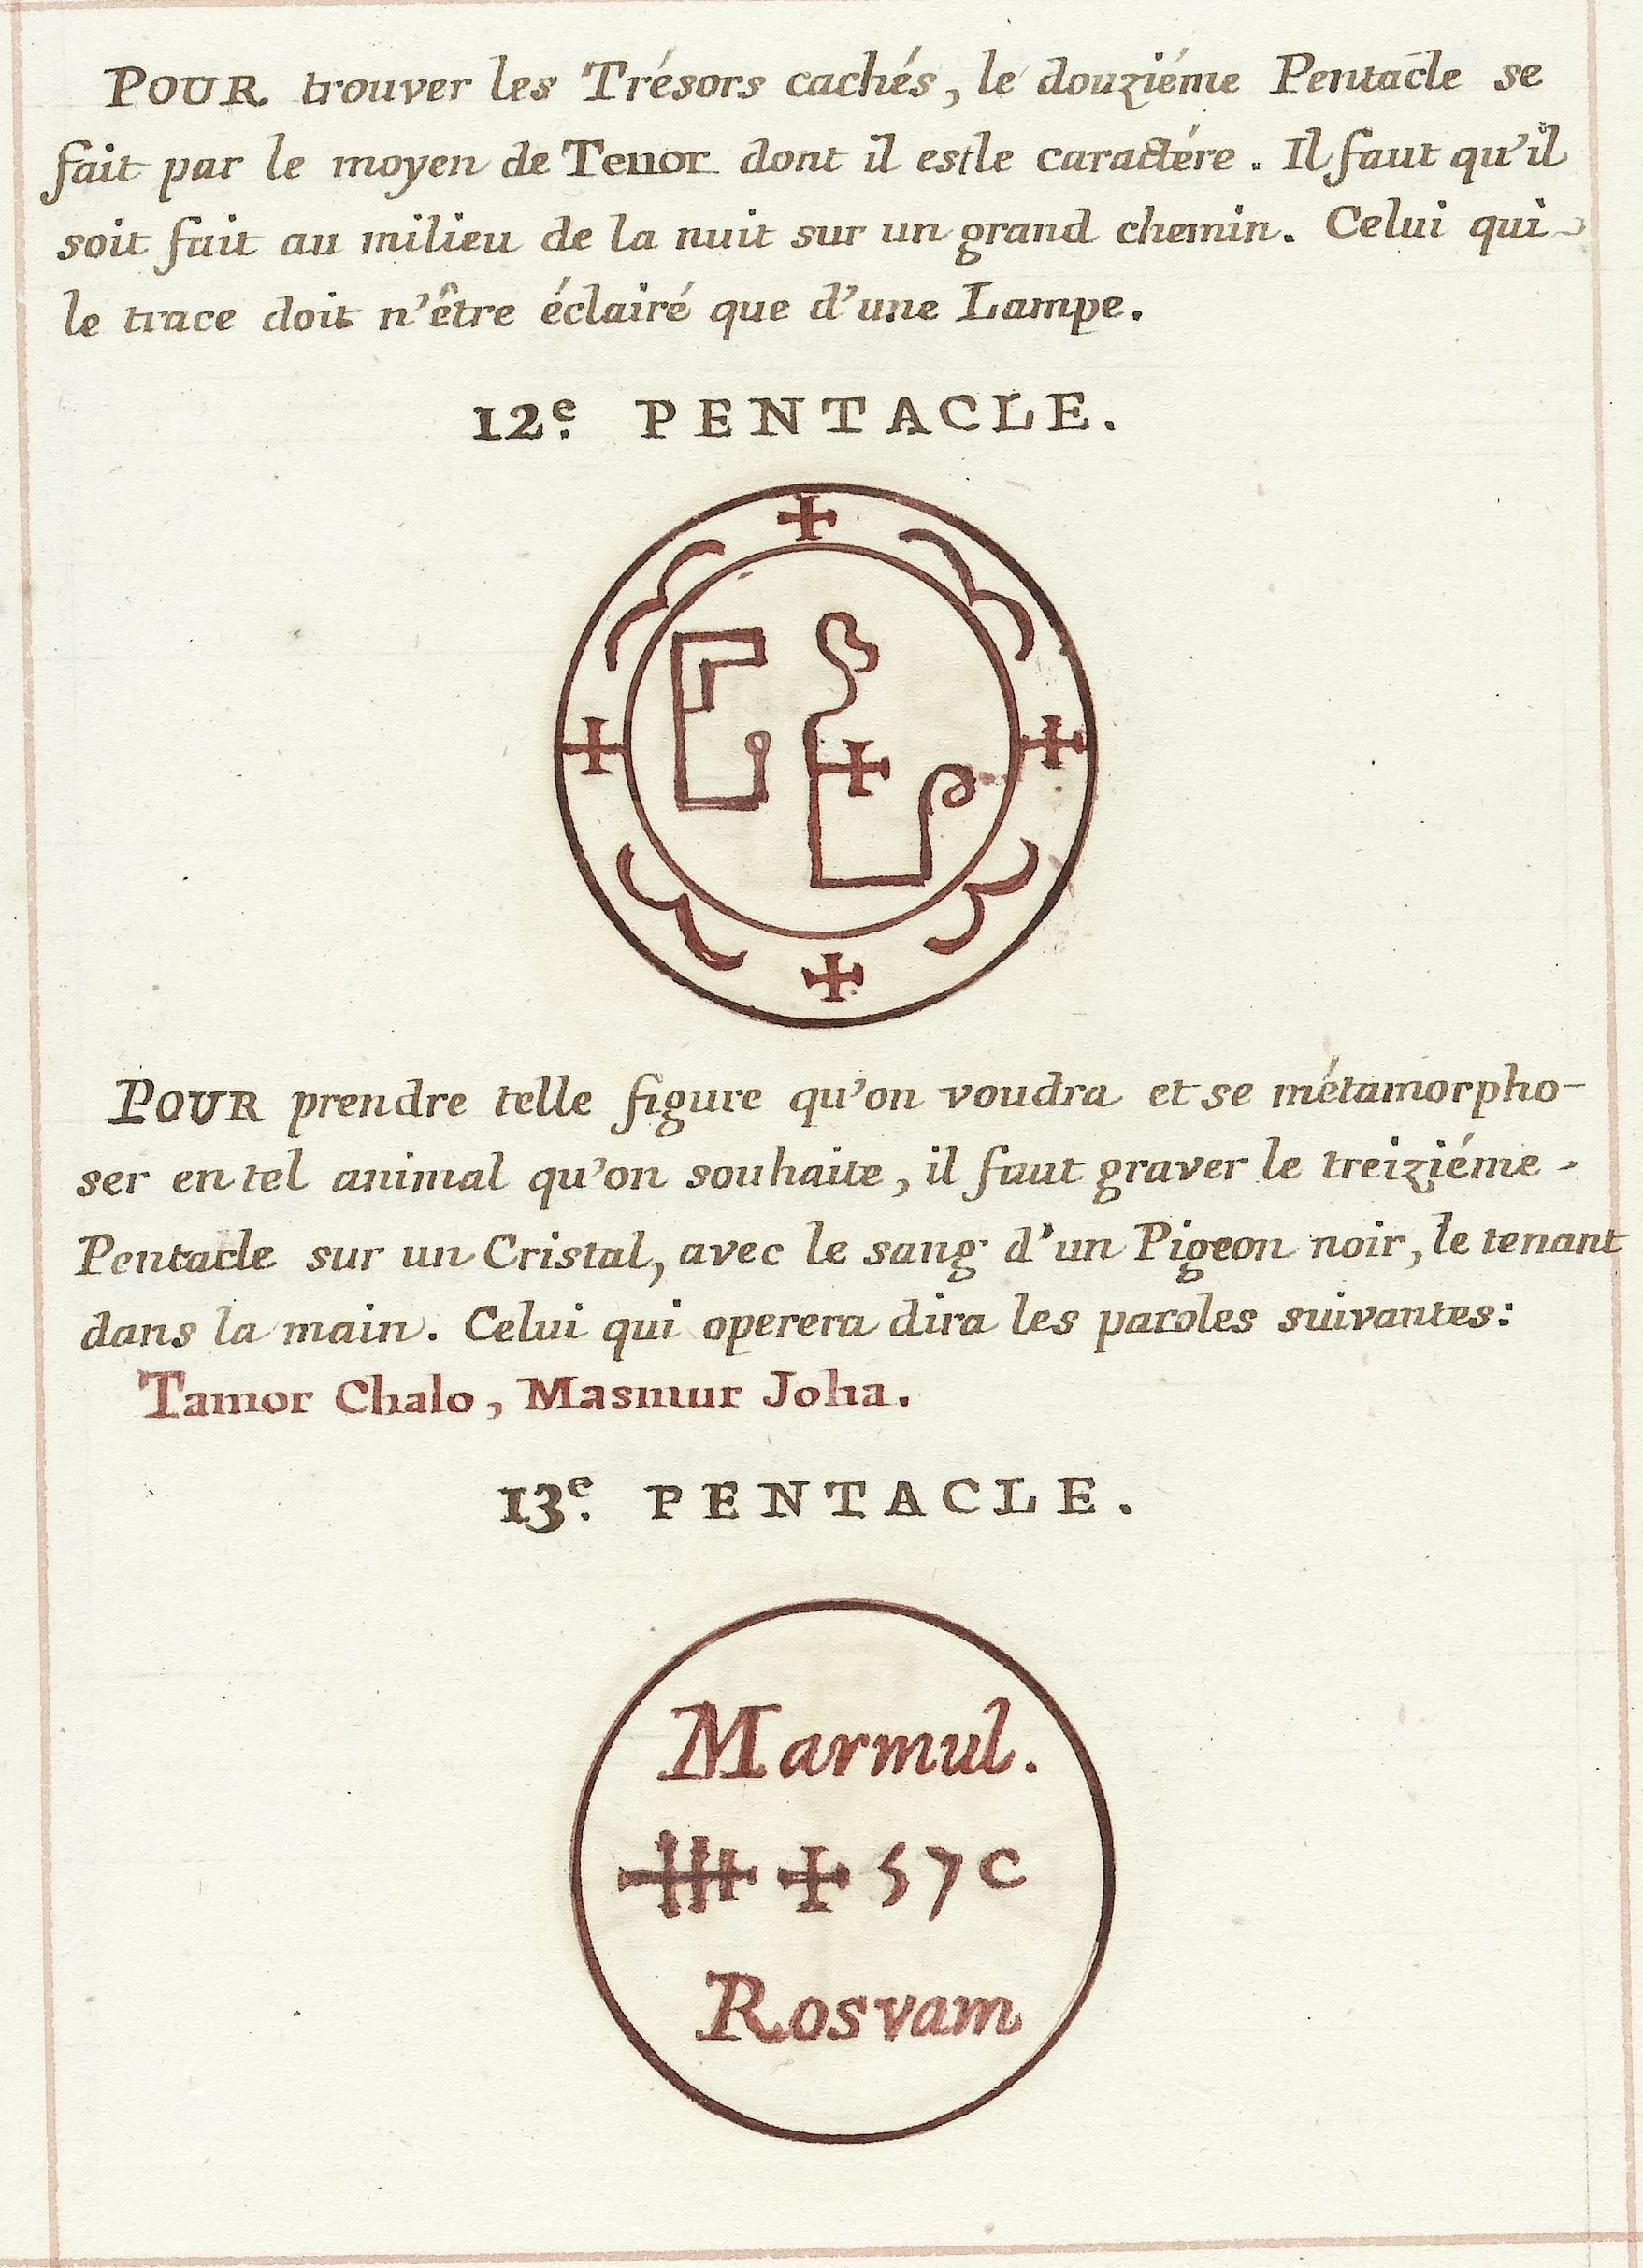 POUR trouver les Trésors cachés, le douziéme Pentacle se
fait par le moyen de Tenor dont il est le caractére. Il faut qu'il
soit fait au milieu de la nuit sur un grand chemin. Celui qui
le trace doit n'être éclairé que d'une Lampe.
12e. PENTACLE.
POUR prendre telle figure qu'on voudra et se métamorpho-
ser en tel animal qu'on souhaite, il faut graver le treiziéme
Pentacle sur un Cristal, avec le sang d'un Pigeon noir, le tenant
dans la main. Celui qui operera dira les paroles suivantes:
Tamor Chalo, Masmur Joha.
13e. PENTACLE.
Marmul.
57c
Rosvam